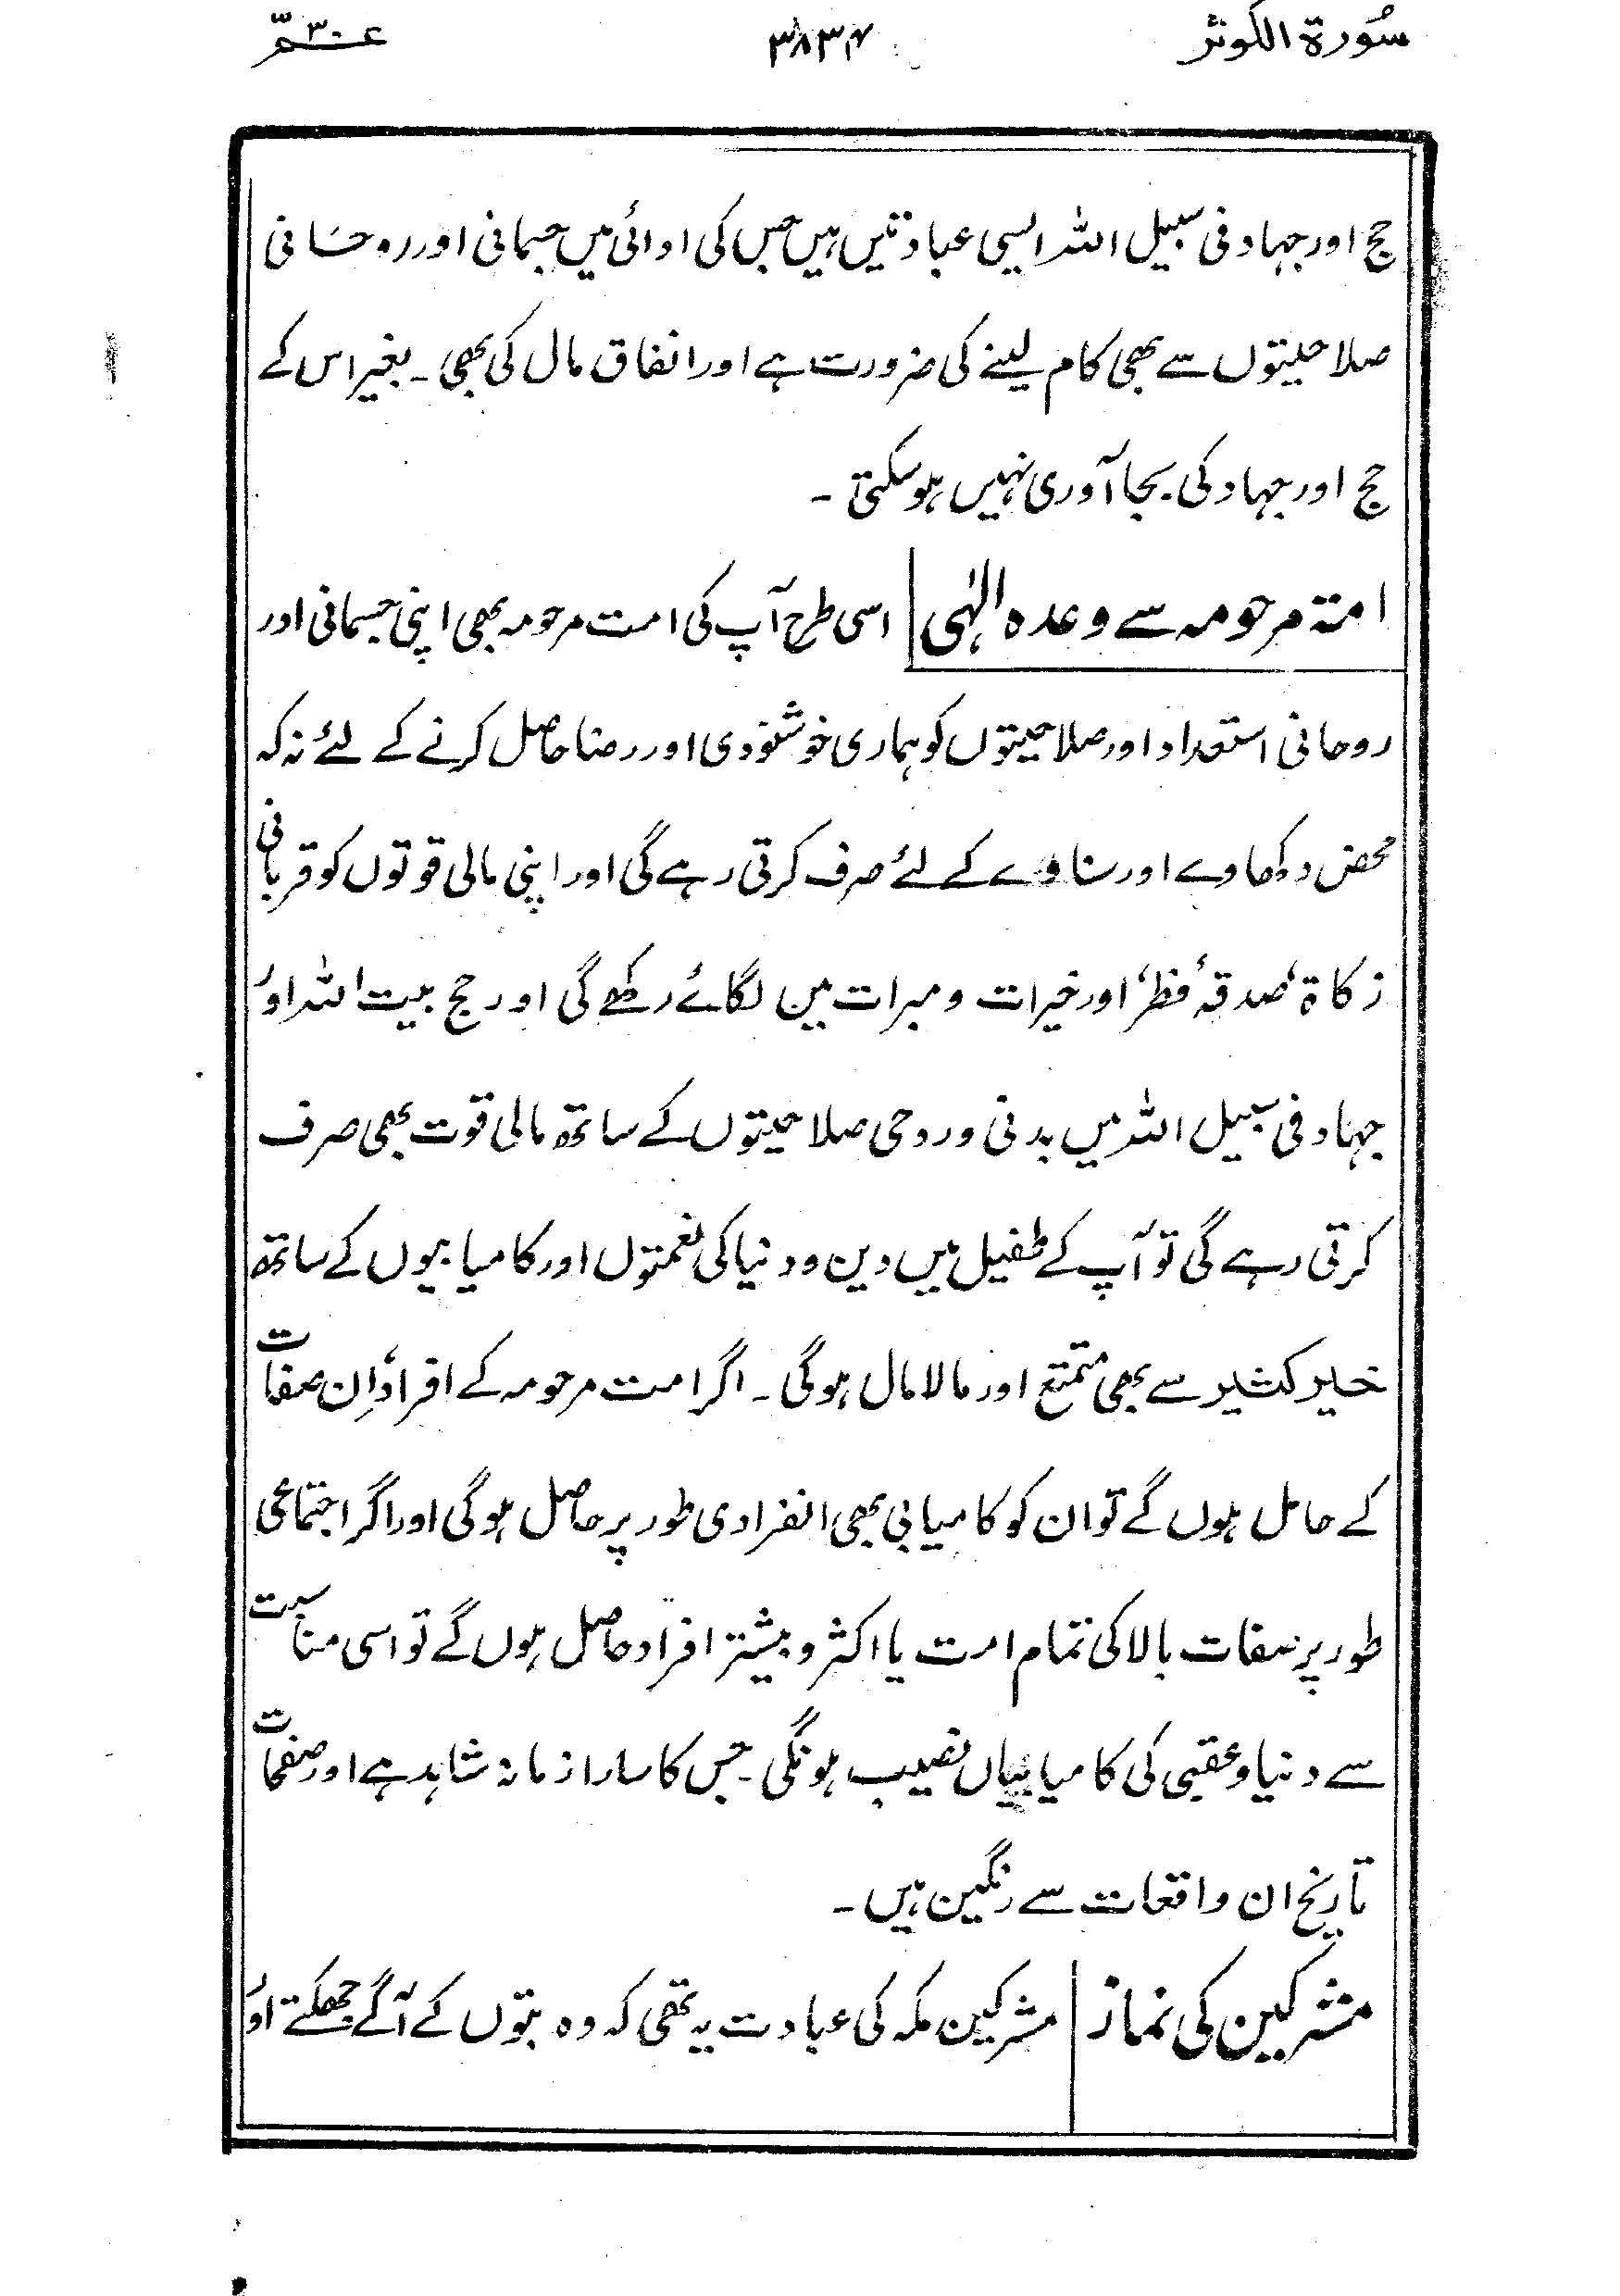 سُورة الکوثر ۳۸۳۴ عـ۳۰ـمّ
حج اور جہاد فی سبیل اللہ ایسی عبادتیں ہیں جس کی ادائی میں جسمانی اور روحانی
صلاحیتوں سے بھی کام لینے کی ضرورت ہے اور انفاق مال کی بھی۔ بغیر اس کے
حج اور جہاد کی بجا آوری نہیں ہو سکتی۔
امتہ مرحومہ سے وعدہ الٰہی اسی طرح آپ کی امت مرحومہ بھی اپنی جسمانی اور
روحانی استعداد اور صلاحیتوں کو ہماری خوشنودی اور رضا حاصل کرنے کے لئے نہ کہ
محض دکھاوے اور سناوے کے لئے صرف کرتی رہے گی اور اپنی مالی قوتوں کو قربانی
زکاۃ، صدقۂ فطر، اور خیرات و مبرات میں لگائے رکھے گی اور حج بیت اللہ اور
جہاد فی سبیل اللہ میں بدنی و روحی صلاحیتوں کے ساتھ مالی قوت بھی صرف
کرتی رہے گی تو آپ کے طفیل میں دین و دنیا کی نعمتوں اور کامیابیوں کے ساتھ
خیر کثیر سے بھی متمتع اور مالا مال ہوگی۔ اگر امت مرحومہ کے افراد اِن صفات
کے حامل ہوں گے تو ان کو کامیابی بھی انفرادی طور پر حاصل ہوگی اور اگر اجتماعی
طور پر صفات بالا کی تمام امت یا اکثر و بیشتر افراد حاصل ہوں گے تو اسی مناسبت
سے دنیا و عقبیٰ کی کامیابیاں نصیب ہونگی۔ جس کا سارا زمانہ شاہد ہے اور صفحات
تاریخ ان واقعات سے رنگین ہیں۔
مشرکین کی نماز مشرکین مکہ کی عبادت یہ تھی کہ وہ بتوں کے آگے جھکتے اور